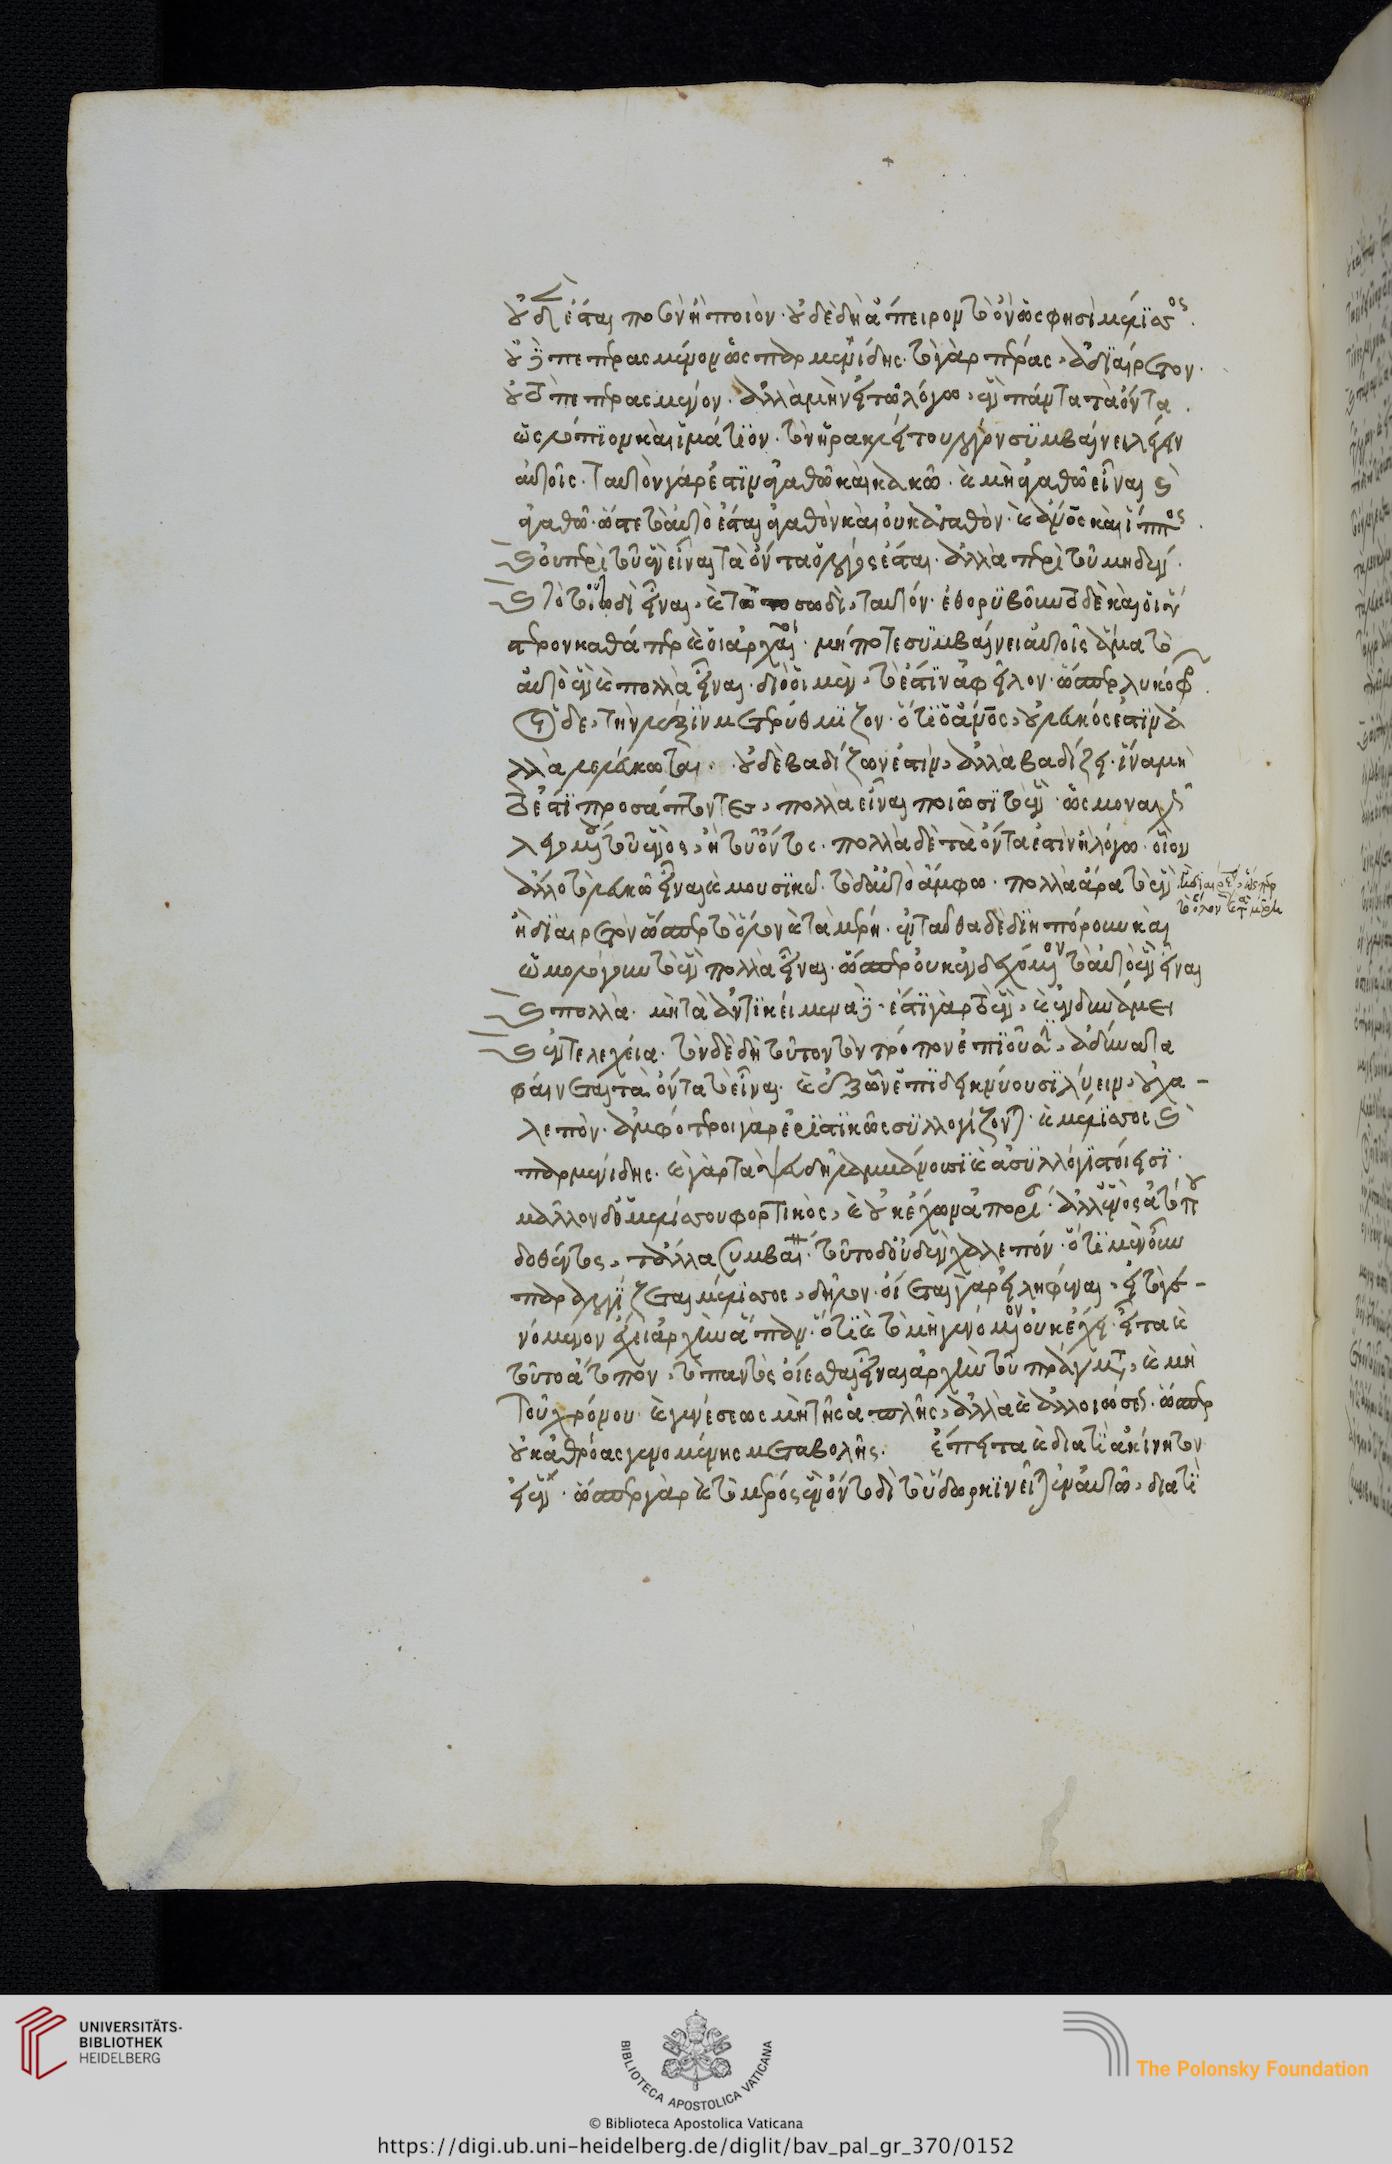 οὐδὲ ἔσται ποσὸν ἢ ποιόν· οὐδὲ δὴ ἄπειρον τὸ ὂν ὥς φησι μέλισσος.
οὐδὲ πεπερασμένον ὡς παρμενίδης· τὸ γὰρ πέρας, ἀδιαίρετον.
οὐ τὸ πεπερασμένον. ἀλλὰ μὴν εἰ τῶ λόγω, ἓν πάντα τὰ ὄντα.
ὡς λώπιον καὶ ἱμάτιον· τὸν ἡρακλείτου λόγον συμβαίνει λέγειν
αὐτοῖς. ταυτὸν γάρ ἐστιν ἀγαθῶ καὶ κακῶ· καὶ μὴ ἀγαθῶ εἶναι καὶ
ἀγαθῶ· ὥστε τὸ αὐτὸ ἔσται ἀγαθὸν καὶ οὐκ ἀγαθὸν· καὶ ἄνθρωπος καὶ ἵππος.
καὶ οὐ περὶ τοῦ ἓν εἶναι τὰ ὄντα ὁ λόγος ἔσται· ἀλλὰ περὶ τοῦ μηδέν·
καὶ τὸ τοιωδὶ εἶναι, καὶ τῶ τοσωδὶ, ταυτόν· ἐθορυβοῦντο δὲ καὶ οἱ ὕ
στερον καθάπερ καὶ οἱ ἀρχαῖοι· μήποτε συμβαίνει αὐτοῖς ἅμα τὸ
αὐτὸ ἓν καὶ πολλὰ εἶναι· διὸ οἱ μὲν, τὸ ἐστὶν ἀφεῖλον· ὥσπερ λυκόφρων.
οἱ δὲ, τὴν λέξιν μετερύθμιζον· ὅτι ὁ ἄνθρωπος, οὐ λευκός ἐστιν ἀ
λλὰ λελεύκωται· οὐδὲ βαδίζων ἐστίν, ἀλλὰ βαδίζει· ἵνα μὴ
τὸ ἐστὶ προσάπτοντες, πολλὰ εἶναι ποιῶσι τὸ ἓν· ὡς μοναχῶς
λεγομένου τοῦ ἑνὸς, ἢ τοῦ ὄντος. πολλὰ δὲ τὰ ὄντα ἐστὶν ἢ λόγω· οἷον
ἄλλο τὸ λευκῶ εἶναι καὶ μουσικῶ· τὸ δ' αὐτὸ ἄμφω· πολλὰ ἄρα τὸ ἓν
ἢ διαιρέσει, ὥσπερ
τὸ ὅλον καὶ τὰ μέρη
ἢ διαιρετὸν ὥσπερ τὸ ὅλον καὶ τὰ μέρη. ἐνταῦθα δὲ διηπόρουν καὶ
ὡμολόγουν τὸ ἓν πολλὰ εἶναι· ὥσπερ οὐκ ἐνδεχόμενον τὸ αὐτὸ ἓν εἶναι
καὶ πολλὰ· μὴ τὰ ἀντικείμενα δέ· ἔστι γὰρ τὸ ἓν, καὶ ἐν δυνάμει
καὶ ἐντελεχεία. τὸν δὲ δὴ τοῦτον τὸν τρόπον ἐπιοῦσιν, ἀδύνατα
φαίνεται τὰ ὄντα τὸ εἶναι· καὶ ἐξ ὧν ἐπιδεικνύουσι λύειν, οὐ χα-
λεπόν. ἀμφότεροι γὰρ ἐριστικῶς συλλογίζονται· καὶ μέλισσος καὶ
παρμενίδης· καὶ γὰρ τὰ ψευδῆ λαμβάνουσι καὶ ἀσυλλόγιστοί εἰσι·
μᾶλλον δ' ὁ μελίσσου φορτικὸς, καὶ οὐκ ἔχων ἀπορίαν· ἀλλ' ἑνὸς ἀτόπου
δοθέντος, τἄλλα συμβαίνει· τοῦτο δ' οὐδὲν χαλεπόν· ὅτι μὲν οὖν
παραλογίζεται μέλισσος, δῆλον· οἴεται γὰρ εἰληφέναι, εἰ τὸ γε-
νόμενον ἔχει ἀρχὴν ἅπαν· ὅτι καὶ τὸ μὴ γενόμενον οὐκ ἔχει· εἶτα καὶ
τοῦτο ἄτοπον, τὸ παντὸς οἴεσθαι εἶναι ἀρχὴν τοῦ πράγματος, καὶ μὴ
τοῦ χρόνου· καὶ γενέσεως μὴ τῆς ἁπλῆς, ἀλλὰ καὶ ἀλλοιώσεως· ὥσπερ
οὐκ ἀθρόας γενομένης μεταβολῆς. ἔπειτα καὶ διατί ἀκίνητον
εἰ ἓν· ὥσπερ γὰρ καὶ τὸ μέρος ἓν ὂν τοδὶ τὸ ὕδωρ κινεῖται ἐν ἑαυτῶ, διατί
UNIVERSITÄTS-
BIBLIOTHEK
HEIDELBERG
BIBLIOTECA APOSTOLICA VATICANA
The Polonsky Foundation
© Biblioteca Apostolica Vaticana
https://digi.ub.uni-heidelberg.de/diglit/bav_pal_gr_370/0152